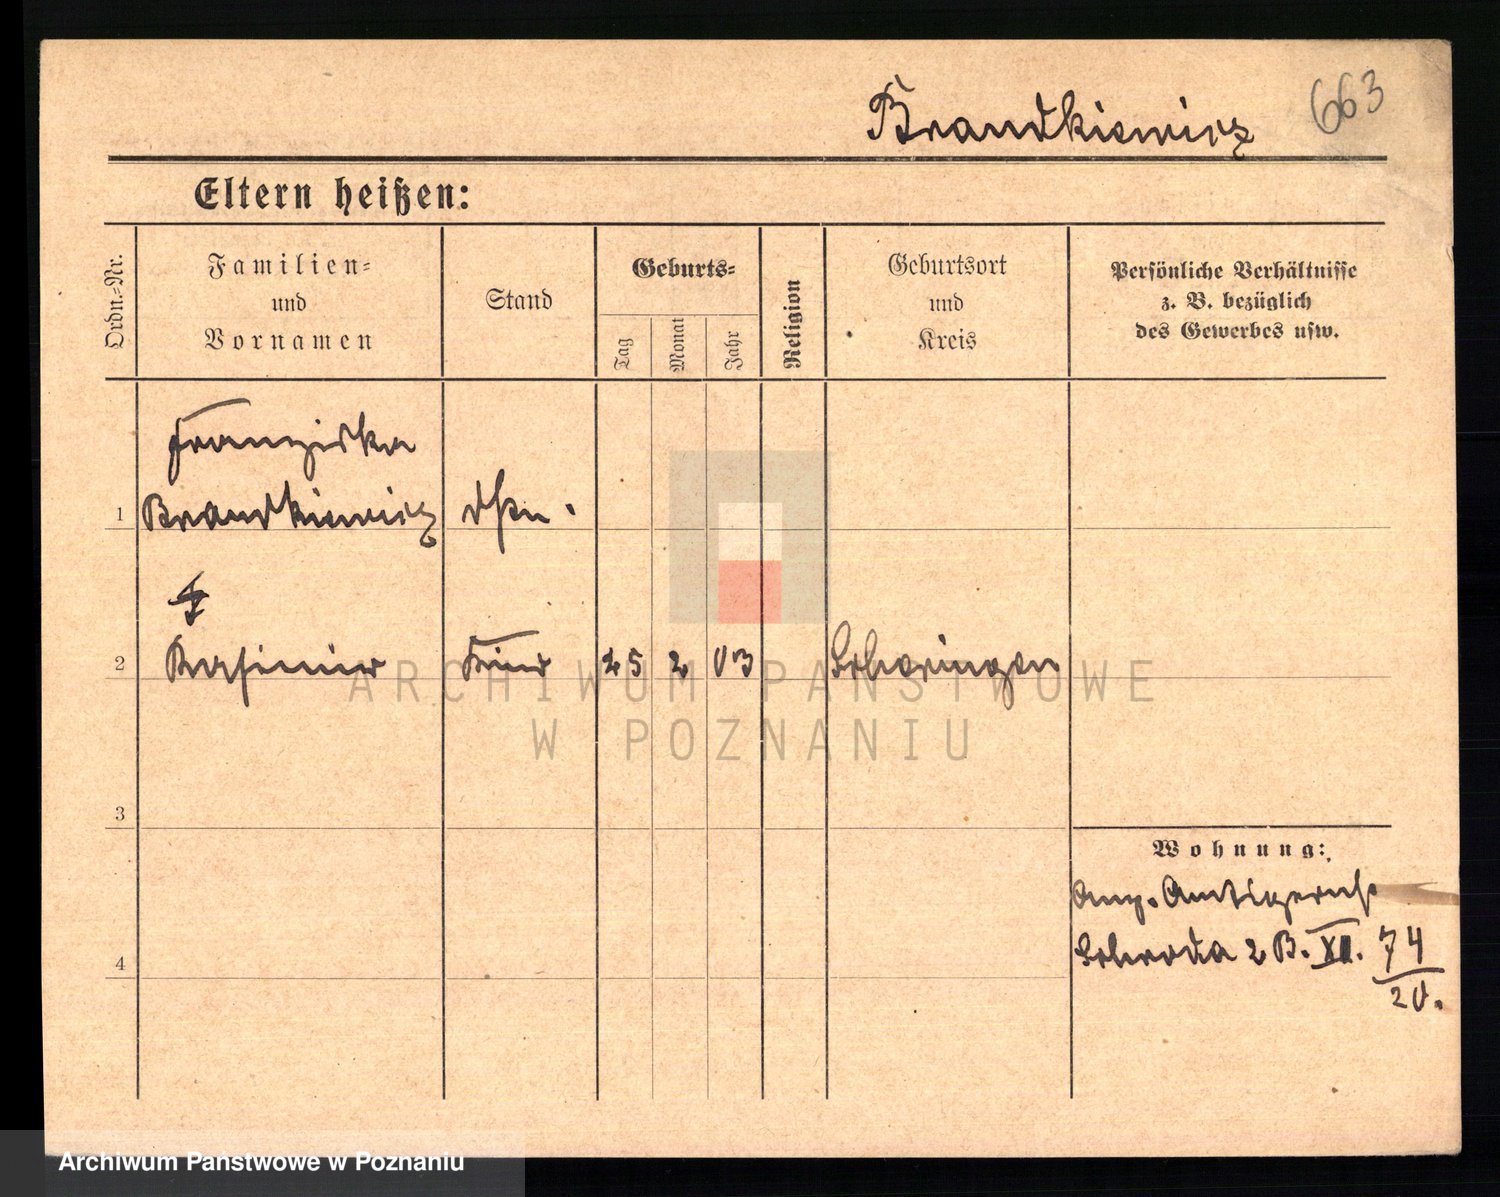 Brandkiewicz
663
Eltern heißen:
Ordn.-Nr.
Familien-
und
Vornamen
Stand
Geburts-
Tag
Monat
Jahr
Religion
Geburtsort
und
Kreis
Persönliche Verhältnisse
z. B. bezüglich
des Gewerbes usw.
Franziska
1 Brandkiewicz
2 Kasimier Kind 25 2 03
3
Wohnung:
Ang. Amtsgericht
Schroda 2 B. XII. 74
20.
4
ARCHIWUM PAŃSTWOWE
W POZNANIU
Archiwum Państwowe w Poznaniu